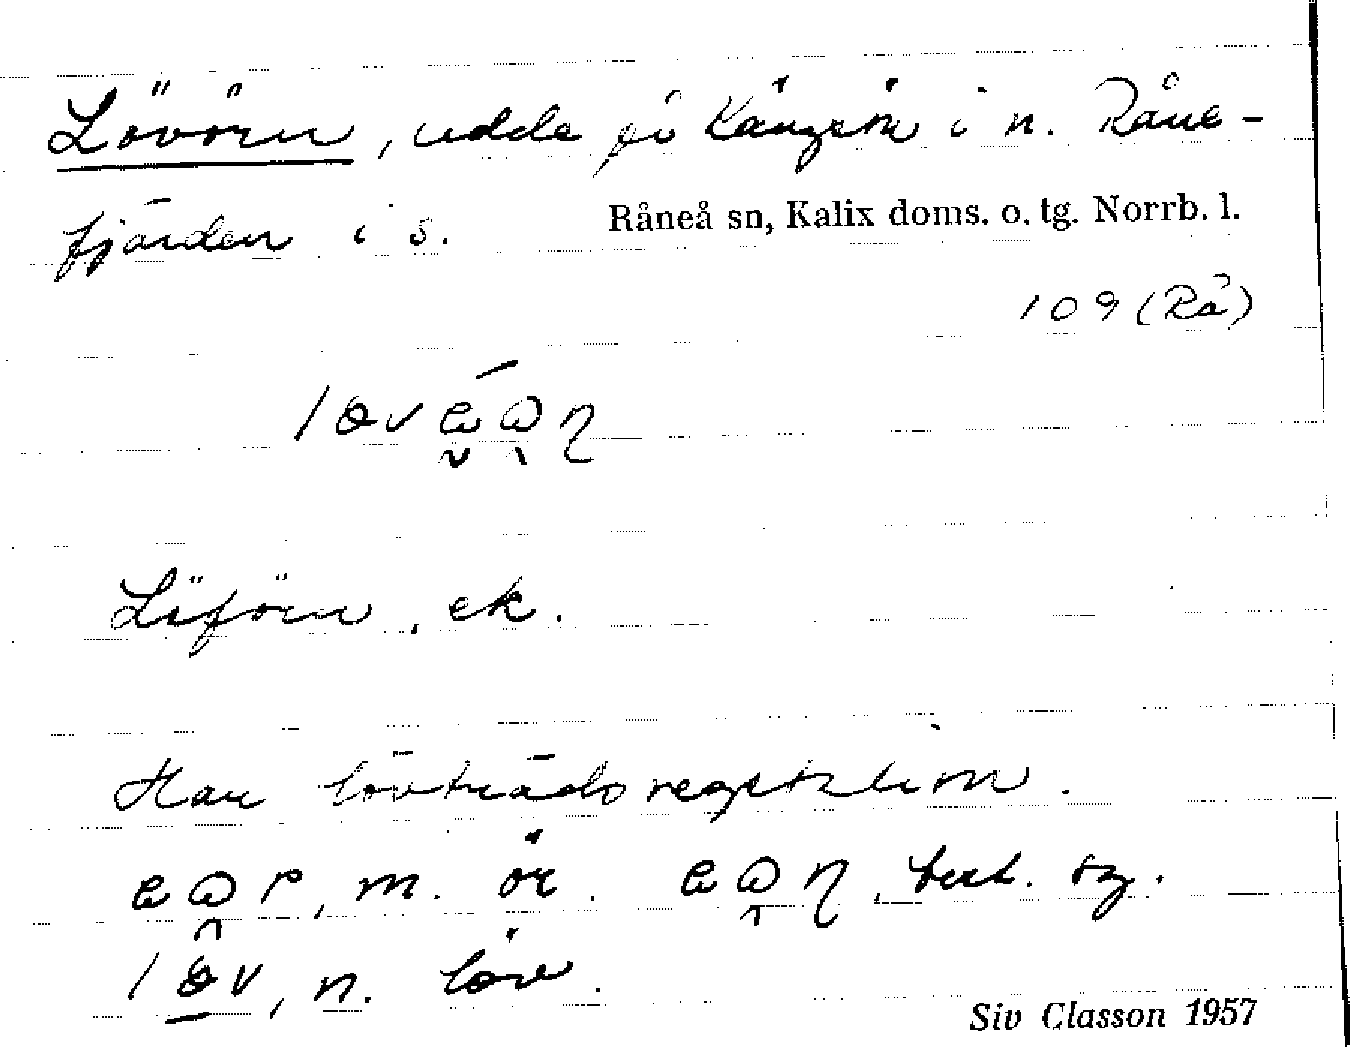 Lövörn, udde på Kängsön i n. Råne-
fjärden i s. Råneå sn, Kalix doms. o. tg. Norrb. l.
109 (Rå)
Löförn, ek.
Har lövträdsvegetation.
m. ör. best. sg.
n. löv.
Siv Classon 1957